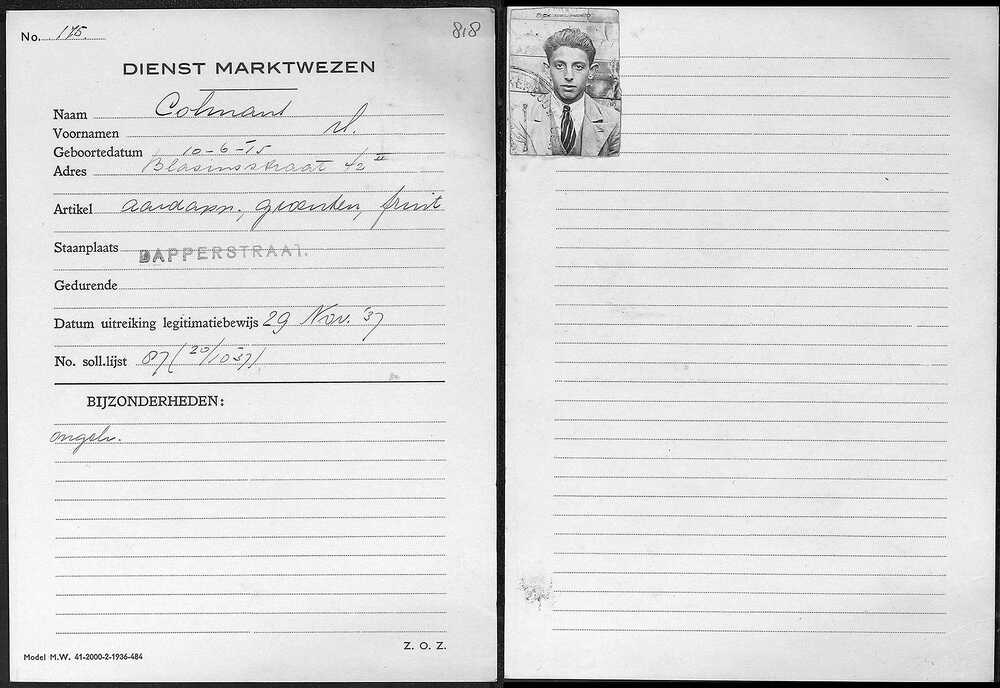 No. 175.
818
DIENST MARKTWEZEN
Naam Colmant
Voornamen
Geboortedatum 10-6-15
Adres Blasiusstraat 42 II
Artikel aardapp., groenten, fruit
Staanplaats DAPPERSTRAAT.
Gedurende
Datum uitreiking legitimatiebewijs 29 Nov. '37
No. soll.lijst 87 (20/10 37)
BIJZONDERHEDEN:
ongeh.
Model M.W. 41-2000-2-1936-484
Z. O. Z.